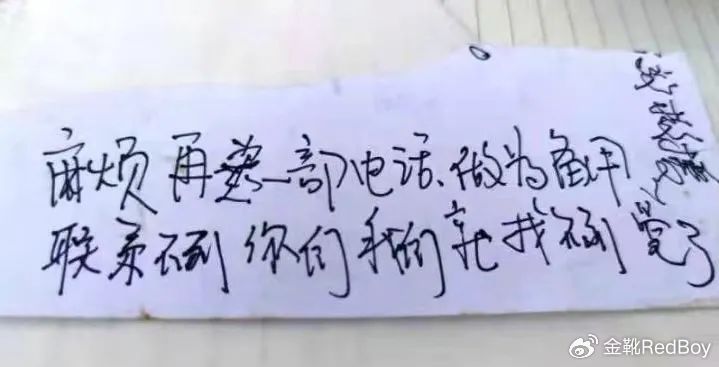 麻烦再一部电话、做为备用
联系不到你们我们就找不到党了
金靴RedBoy